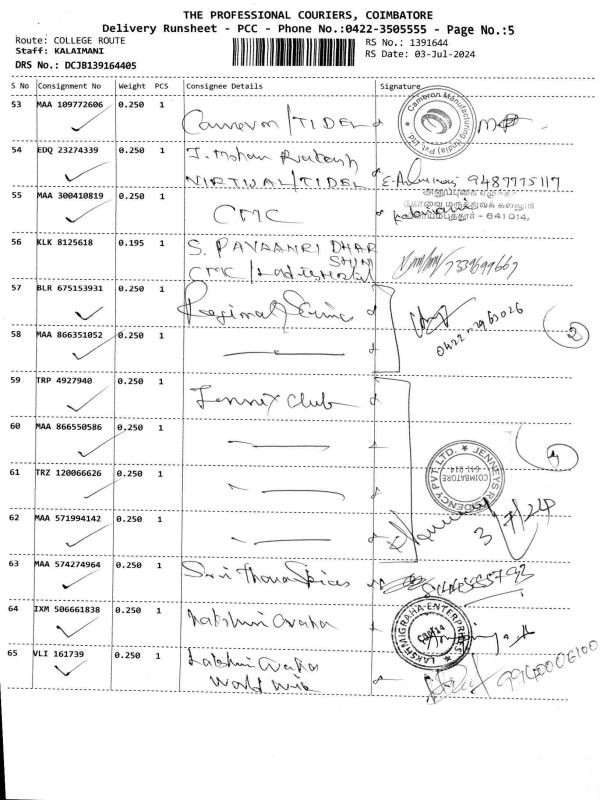 THE PROFESSIONAL COURIERS, COIMBATORE
Delivery Runsheet - PCC - Phone No.:0422-3505555 - Page No.:5
Route: COLLEGE ROUTE
RS No.: 1391644
Staff: KALAIMANI
RS Date: 03-Jul-2024
DRS No.: DCJB139164405
S No Consignment No Weight PCS Consignee Details Signature
53 MAA 109772606 0.250 1
Cameron/TIDEL
Cameron Manufacturing (India) Pvt. Ltd.
54 EDQ 23274339 0.250 1 J. Mohan
VIRTUAL/TIDEL 9487775117
55 MAA 300410819 0.250 1 CMC
கோவை மருத்துவக் கல்லூரி
கோயம்புத்தூர் - 641 014.
56 KLK 8125618 0.195 1 S.
CMC /
57 BLR 675153931 0.250 1 Regional
0422-2962026
2
58 MAA 866351052 0.250 1
59 TRP 4927940 0.250 1
Club
60 MAA 866550586 0.250 1
JENNEYS RESIDENCY PVT. LTD.
COIMBATORE
641 014
61 TRZ 120066626 0.250 1
62 MAA 571994142 0.250 1
3/7/24
63 MAA 574274964 0.250 1 Sri Thara Spices
64 IXM 506661838 0.250 1
Lakshmi Graha
LAKSHMIGRAHA ENTERPRISES
65 VLI 161739 0.250 1 Lakshmi Graha
World Wide
9940006100